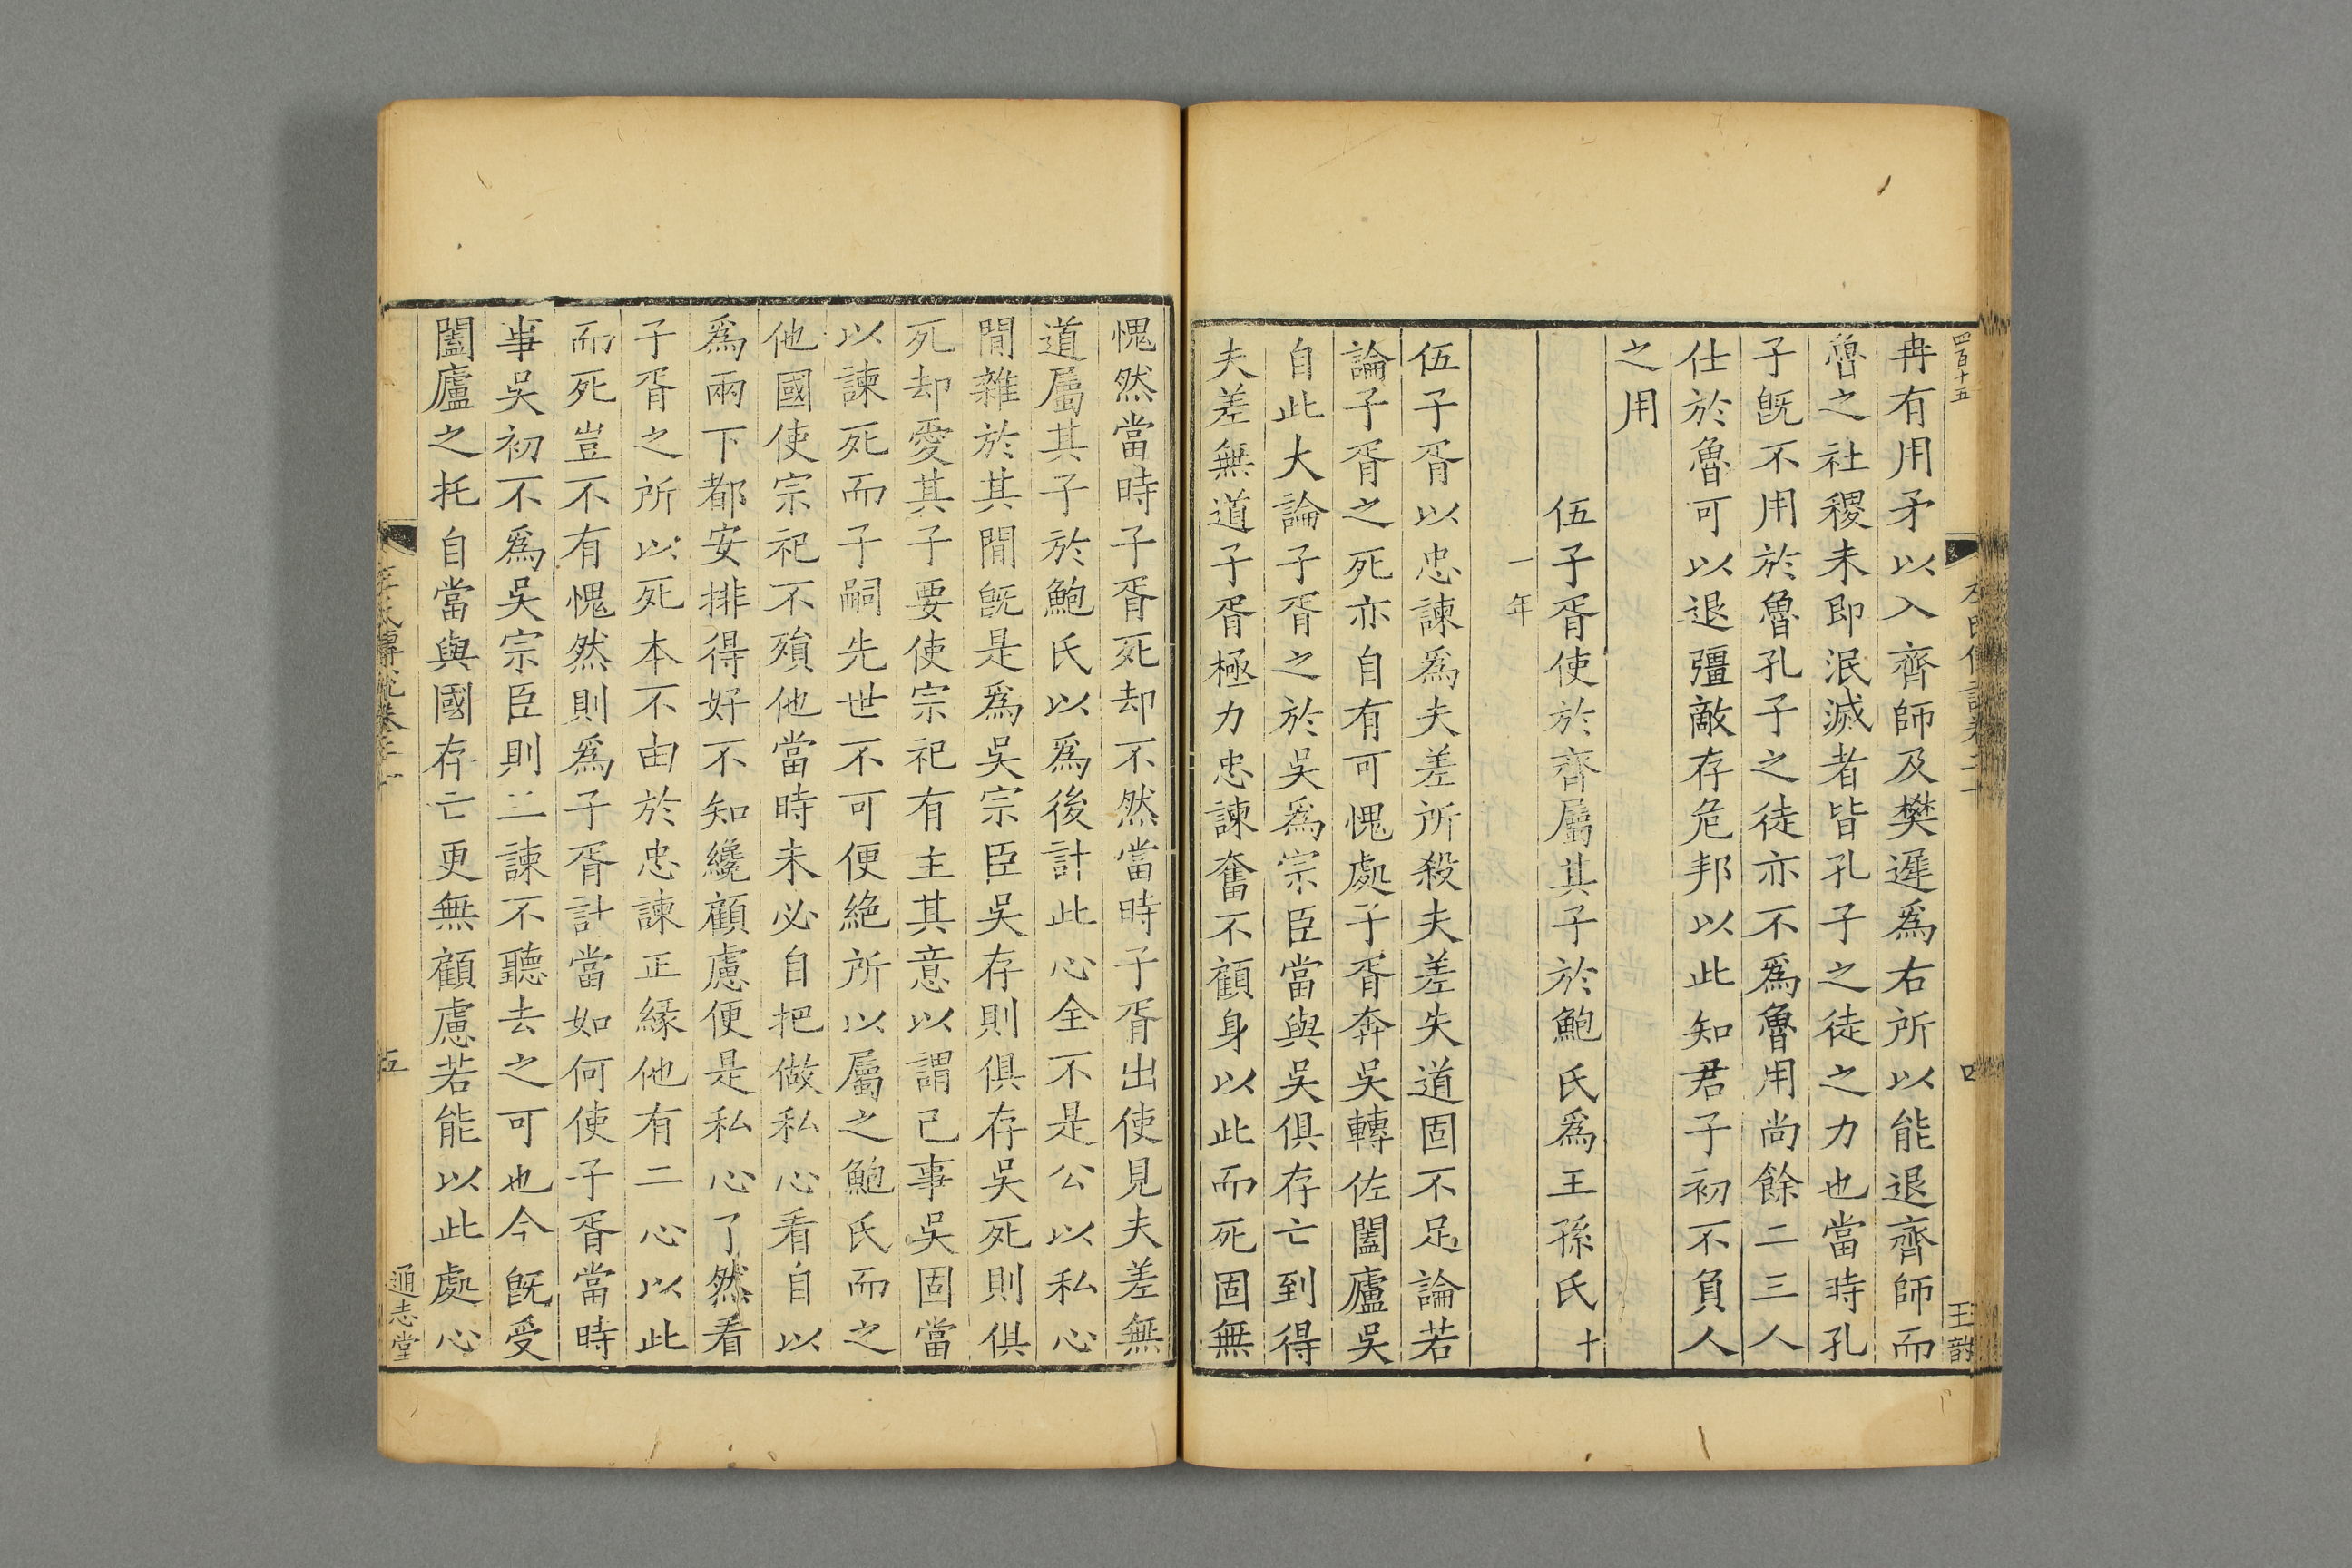 四百十五
冉有用矛以入齊師及樊遲爲右所以能退齊師而
魯之社稷未即泯滅者皆孔子之徒之力也當時孔
子旣不用於魯孔子之徒亦不爲魯用尚餘二三人
仕於魯可以退彊敵存危邦以此知君子初不負人
之用
伍子胥使於齊屬其子於鮑氏爲王孫氏十
一年
伍子胥以忠諫爲夫差所殺夫差失道固不足論若
論子胥之死亦自有可愧處子胥奔吳轉佐闔廬吳
自此大論子胥之於吳爲宗臣當與吳俱存亡到得
夫差無道子胥極力忠諫奮不顧身以此而死固無
愧然當時子胥死却不然當時子胥出使見夫差無
道屬其子於鮑氏以爲後計此心全不是公以私心
閒雜於其閒旣是爲吳宗臣吳存則俱存吳死則俱
死却愛其子要使宗祀有主其意以謂己事吳固當
以諫死而子嗣先世不可便絕所以屬之鮑氏而之
他國使宗祀不殞他當時未必自把做私心看自以
爲兩下都安排得好不知纔顧慮便是私心了然看
子胥之所以死本不由於忠諫正緣他有二心以此
而死豈不有愧然則爲子胥計當如何使子胥當時
事吳初不爲吳宗臣則一諫不聽去之可也今旣受
闔廬之托自當與國存亡更無顧慮若能以此處心
五
通志堂